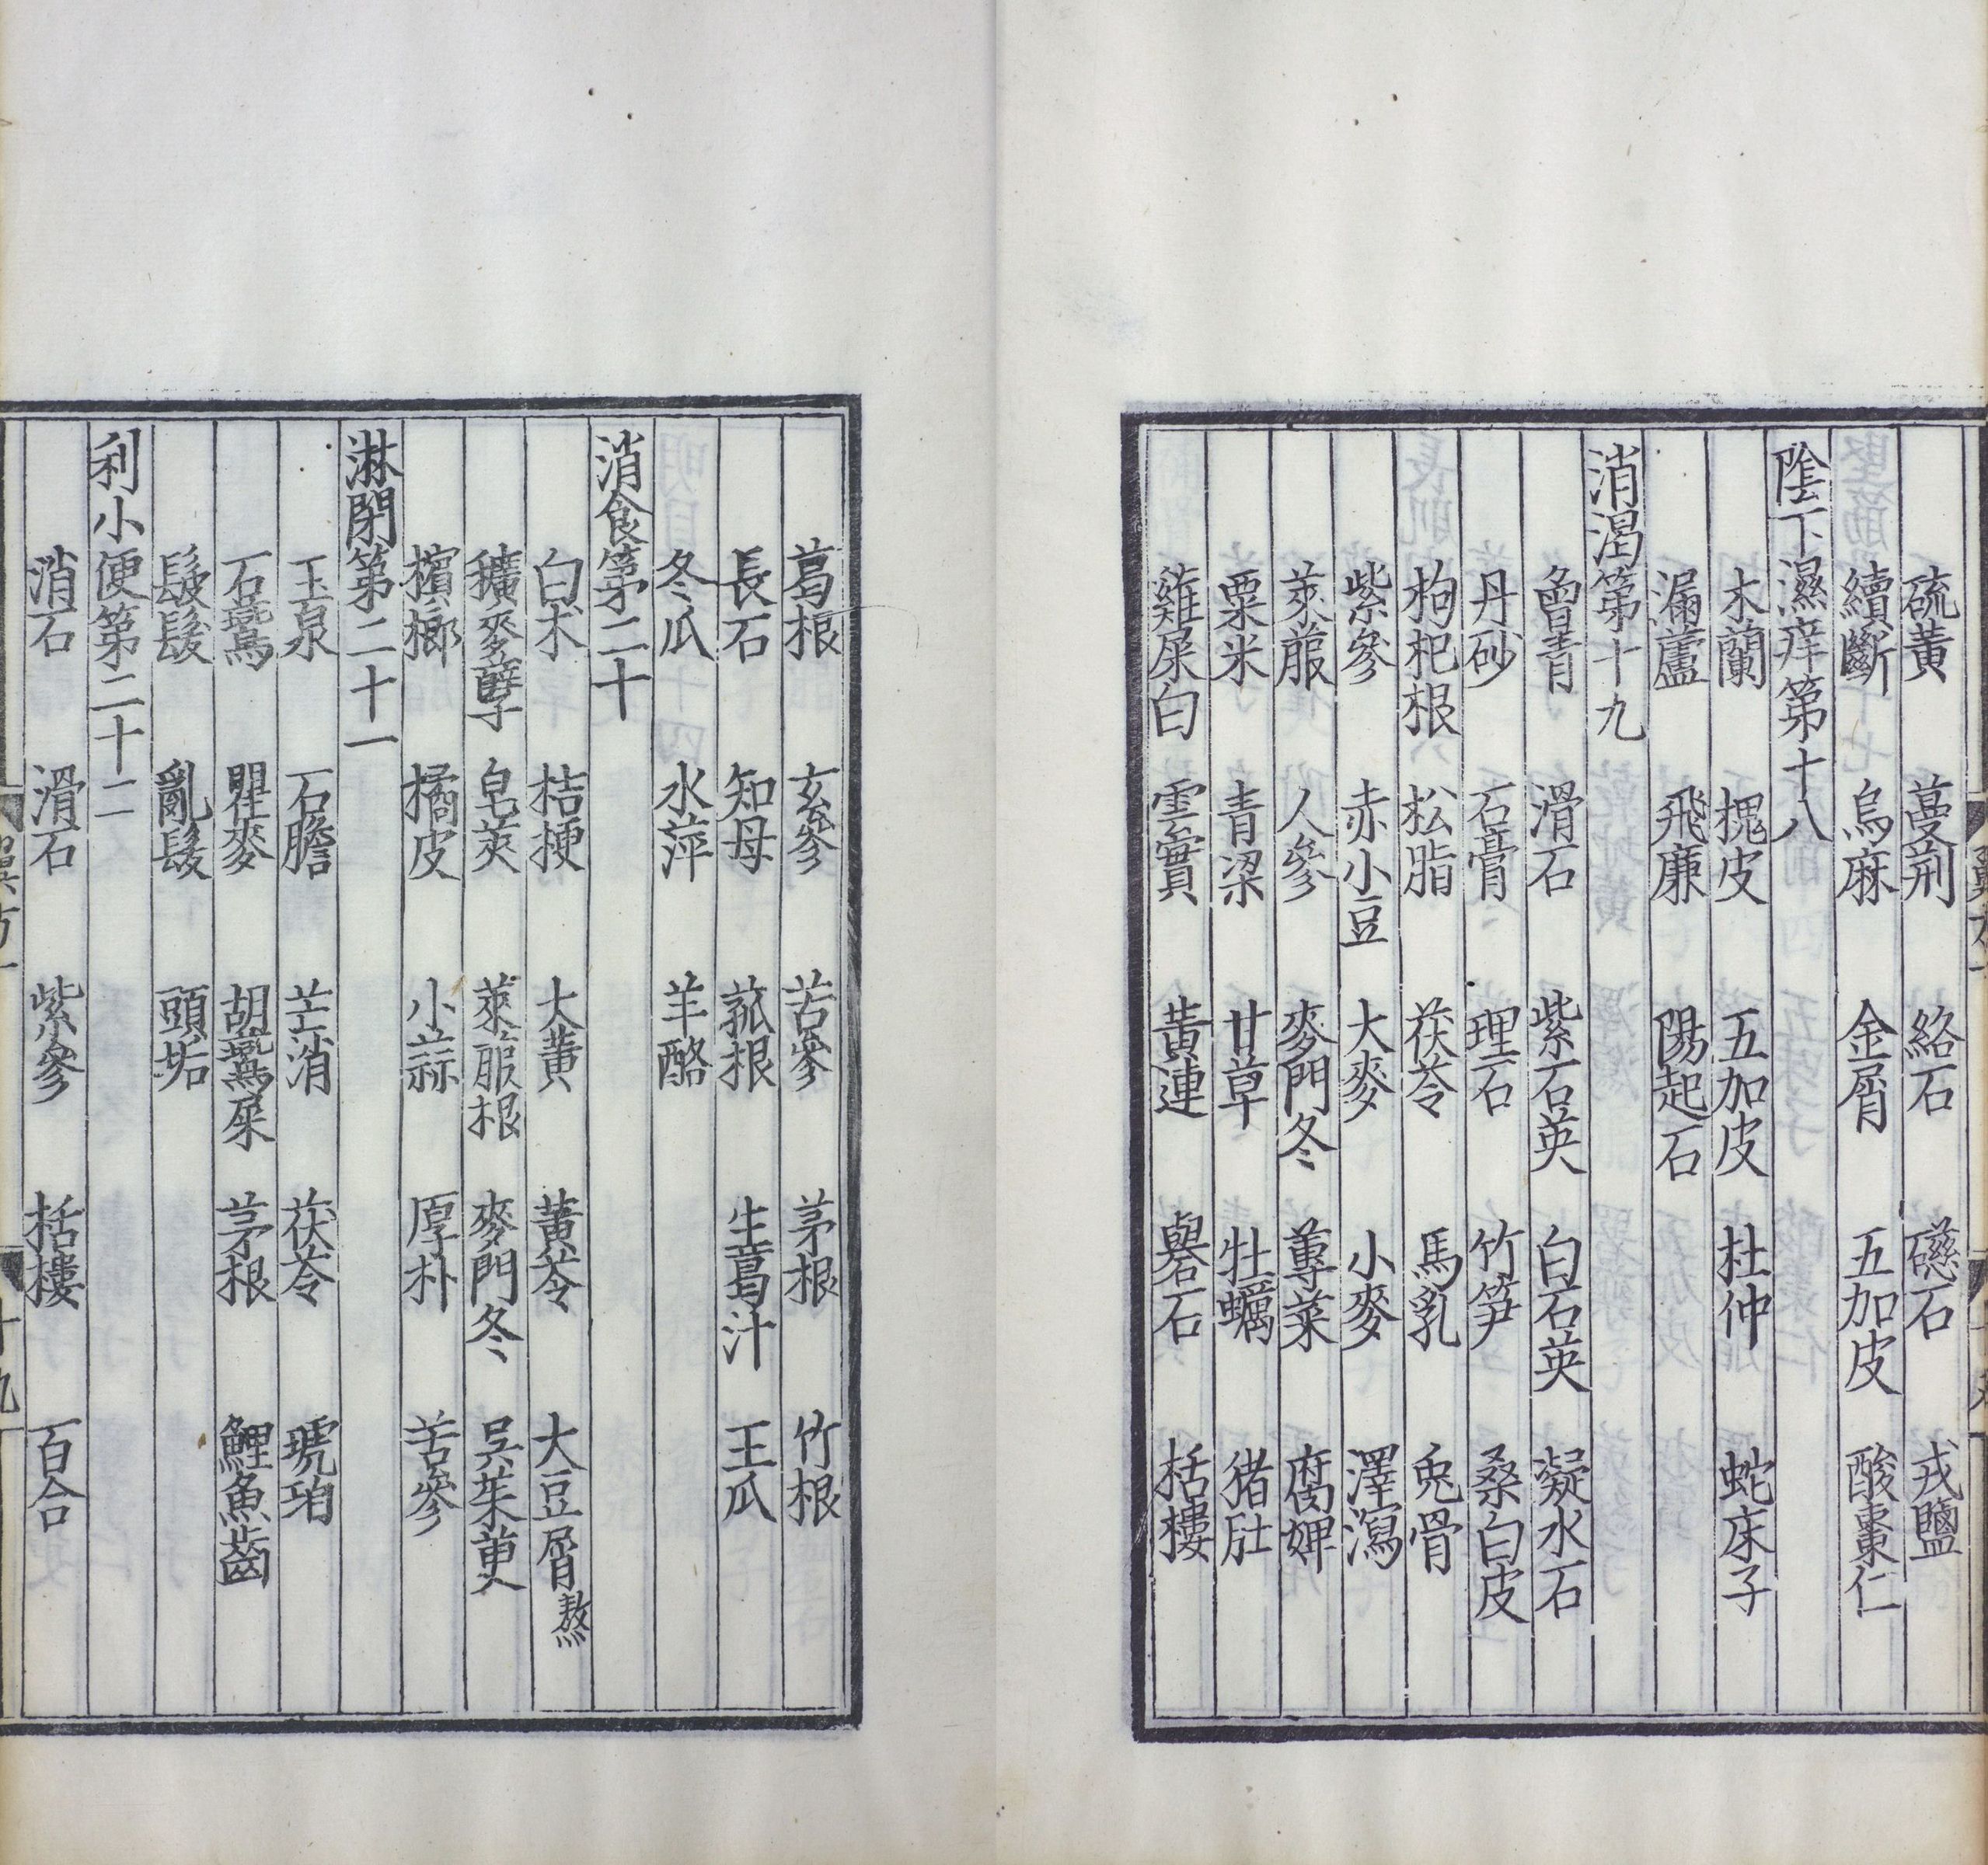 硫黃 蔓荆 絡石 礠石 戎鹽
續斷 烏麻 金屑 五加皮 酸棗仁
陰下濕痒第十八
木蘭 槐皮 五加皮 杜仲 蛇床子
漏蘆 飛廉 陽起石
消渴第十九
曾青 滑石 紫石英 白石英 凝水石
丹砂 石膏 理石 竹笋 桑白皮
枸杞根 松脂 茯苓 馬乳 兎骨
紫參 赤小豆 大麥 小麥 澤瀉
萊服 人參 麥門冬 蓴菜 腐婢
粟米 青梁 甘草 牡蠣 猪肚
雞屎白 雲實 黃連 礜石 栝樓
葛根 玄參 苦參 茅根 竹根
長石 知母 菰根 生葛汁 王瓜
冬瓜 水萍 羊酪
消食第二十
白朮 桔梗 大黃 黃芩 大豆屑熬
穬麥孽 皂莢 萊服根 麥門冬 吳茱萸
檳榔 橘皮 小蒜 厚朴 苦參
淋閉第二十一
玉泉 石膽 芒消 茯苓 琥珀
石鷰 瞿麥 胡鷰屎 茅根 鯉魚齒
髲髮 亂髮 頭垢
利小便第二十二
消石 滑石 紫參 栝樓 百合